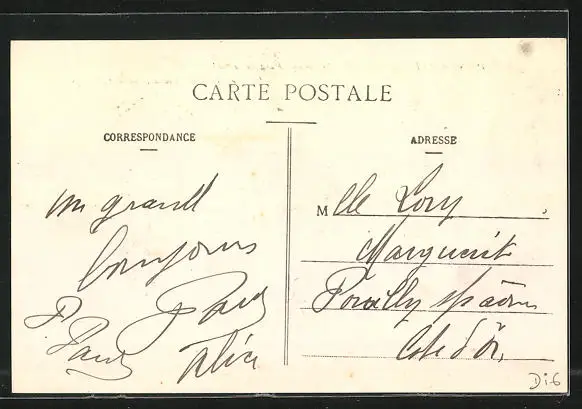 CARTE POSTALE
CORRESPONDANCE
un grand
bonjours
Paul
P Paul
Alice
ADRESSE
Mlle Lory
Marguerit
Pouilly s/Saône
Cote d'Or,
Di6